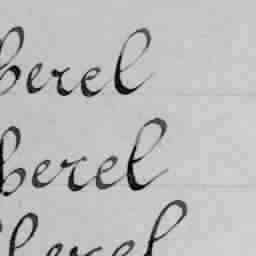 berel
berel
berel